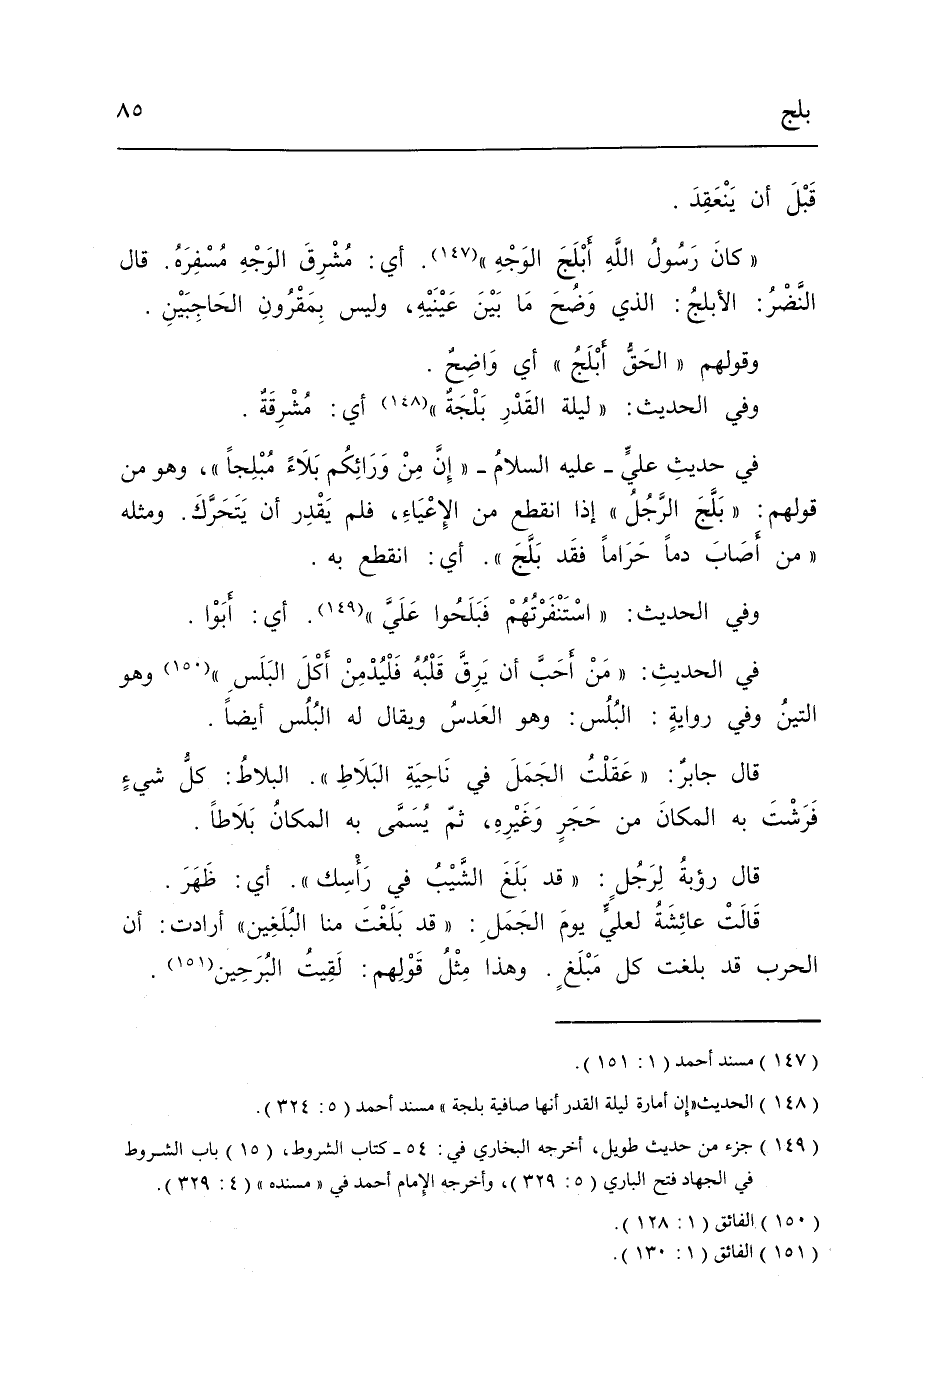 بلج ٨٥
قَبْلَ أن يَنْعَقِدَ .
« كانَ رَسُولُ اللَّهِ أَبْلَجَ الوَجْهِ »(١٤٧). أي: مُشْرِقَ الوَجْهِ مُسْفِرَهُ. قال
النَّضْرُ: الأبلجُ: الذي وَضُحَ مَا بَيْنَ عَيْنَيْهِ، وليس بِمَقْرُونِ الحَاجِبَيْنِ .
وقولهم « الحَقُّ أَبْلَجُ » أي وَاضِحٌ .
وفي الحديث: « ليلة القَدْرِ بَلْجَةٌ »(١٤٨) أي: مُشْرِقَةٌ .
في حديثِ عليٍّ ـ عليه السلامُ ـ « إنَّ مِنْ وَرَائِكُم بَلَاءً مُبْلِجاً »، وهو من
قولهم: « بَلَّجَ الرَّجُلُ » إذا انقطع من الإعْيَاءِ، فلم يَقْدِر أن يَتَحَرَّكَ. ومثله
« من أَصَابَ دماً حَرَاماً فقَد بَلَّجَ ». أي: انقطع به .
وفي الحديث: « اسْتَنْفَرْتُهُمْ فَبَلَحُوا عَلَيَّ »(١٤٩). أي: أَبَوْا .
في الحديثِ: « مَنْ أَحَبَّ أن يَرِقَّ قَلْبُهُ فَلْيُدْمِنْ أَكْلَ البَلَسِ »(١٥٠) وهو
التينُ وفي روايةٍ : البُلُس: وهو العَدسُ ويقال له البُلُس أيضاً .
قال جابرٌ: « عَقَلْتُ الجَمَلَ في نَاحِيَةِ البَلَاطِ ». البلاطُ: كلُّ شيءٍ
فَرَشْتَ به المكانَ من حَجَرٍ وَغَيْرِهِ، ثمّ يُسَمَّى به المكانُ بَلَاطاً .
قال رؤبةُ لِرَجُلٍ : « قد بَلَغَ الشَّيْبُ في رَأْسِك ». أي: ظَهَرَ .
قَالَتْ عائِشَةُ لعليٍّ يومَ الجَمَلِ : « قد بَلَغْتَ منا البُلَغِين» أرادت: أن
الحرب قد بلغت كل مَبْلَغٍ . وهذا مِثْلُ قَوْلِهم: لَقِيتُ البُرَحِين(١٥١) .
( ١٤٧ ) مسند أحمد ( ١ : ١٥١ ).
( ١٤٨ ) الحديث«إن أمارة ليلة القدر أنها صافية بلجة » مسند أحمد ( ٥ : ٣٢٤ ).
( ١٤٩ ) جزء من حديث طويل، أخرجه البخاري في: ٥٤ ـ كتاب الشروط، ( ١٥ ) باب الشروط
في الجهاد فتح الباري ( ٥ : ٣٢٩ )، وأخرجه الإمام أحمد في « مسنده » ( ٤ : ٣٢٩ ).
( ١٥٠ ) الفائق ( ١ : ١٢٨ ).
( ١٥١ ) الفائق ( ١ : ١٣٠ ).